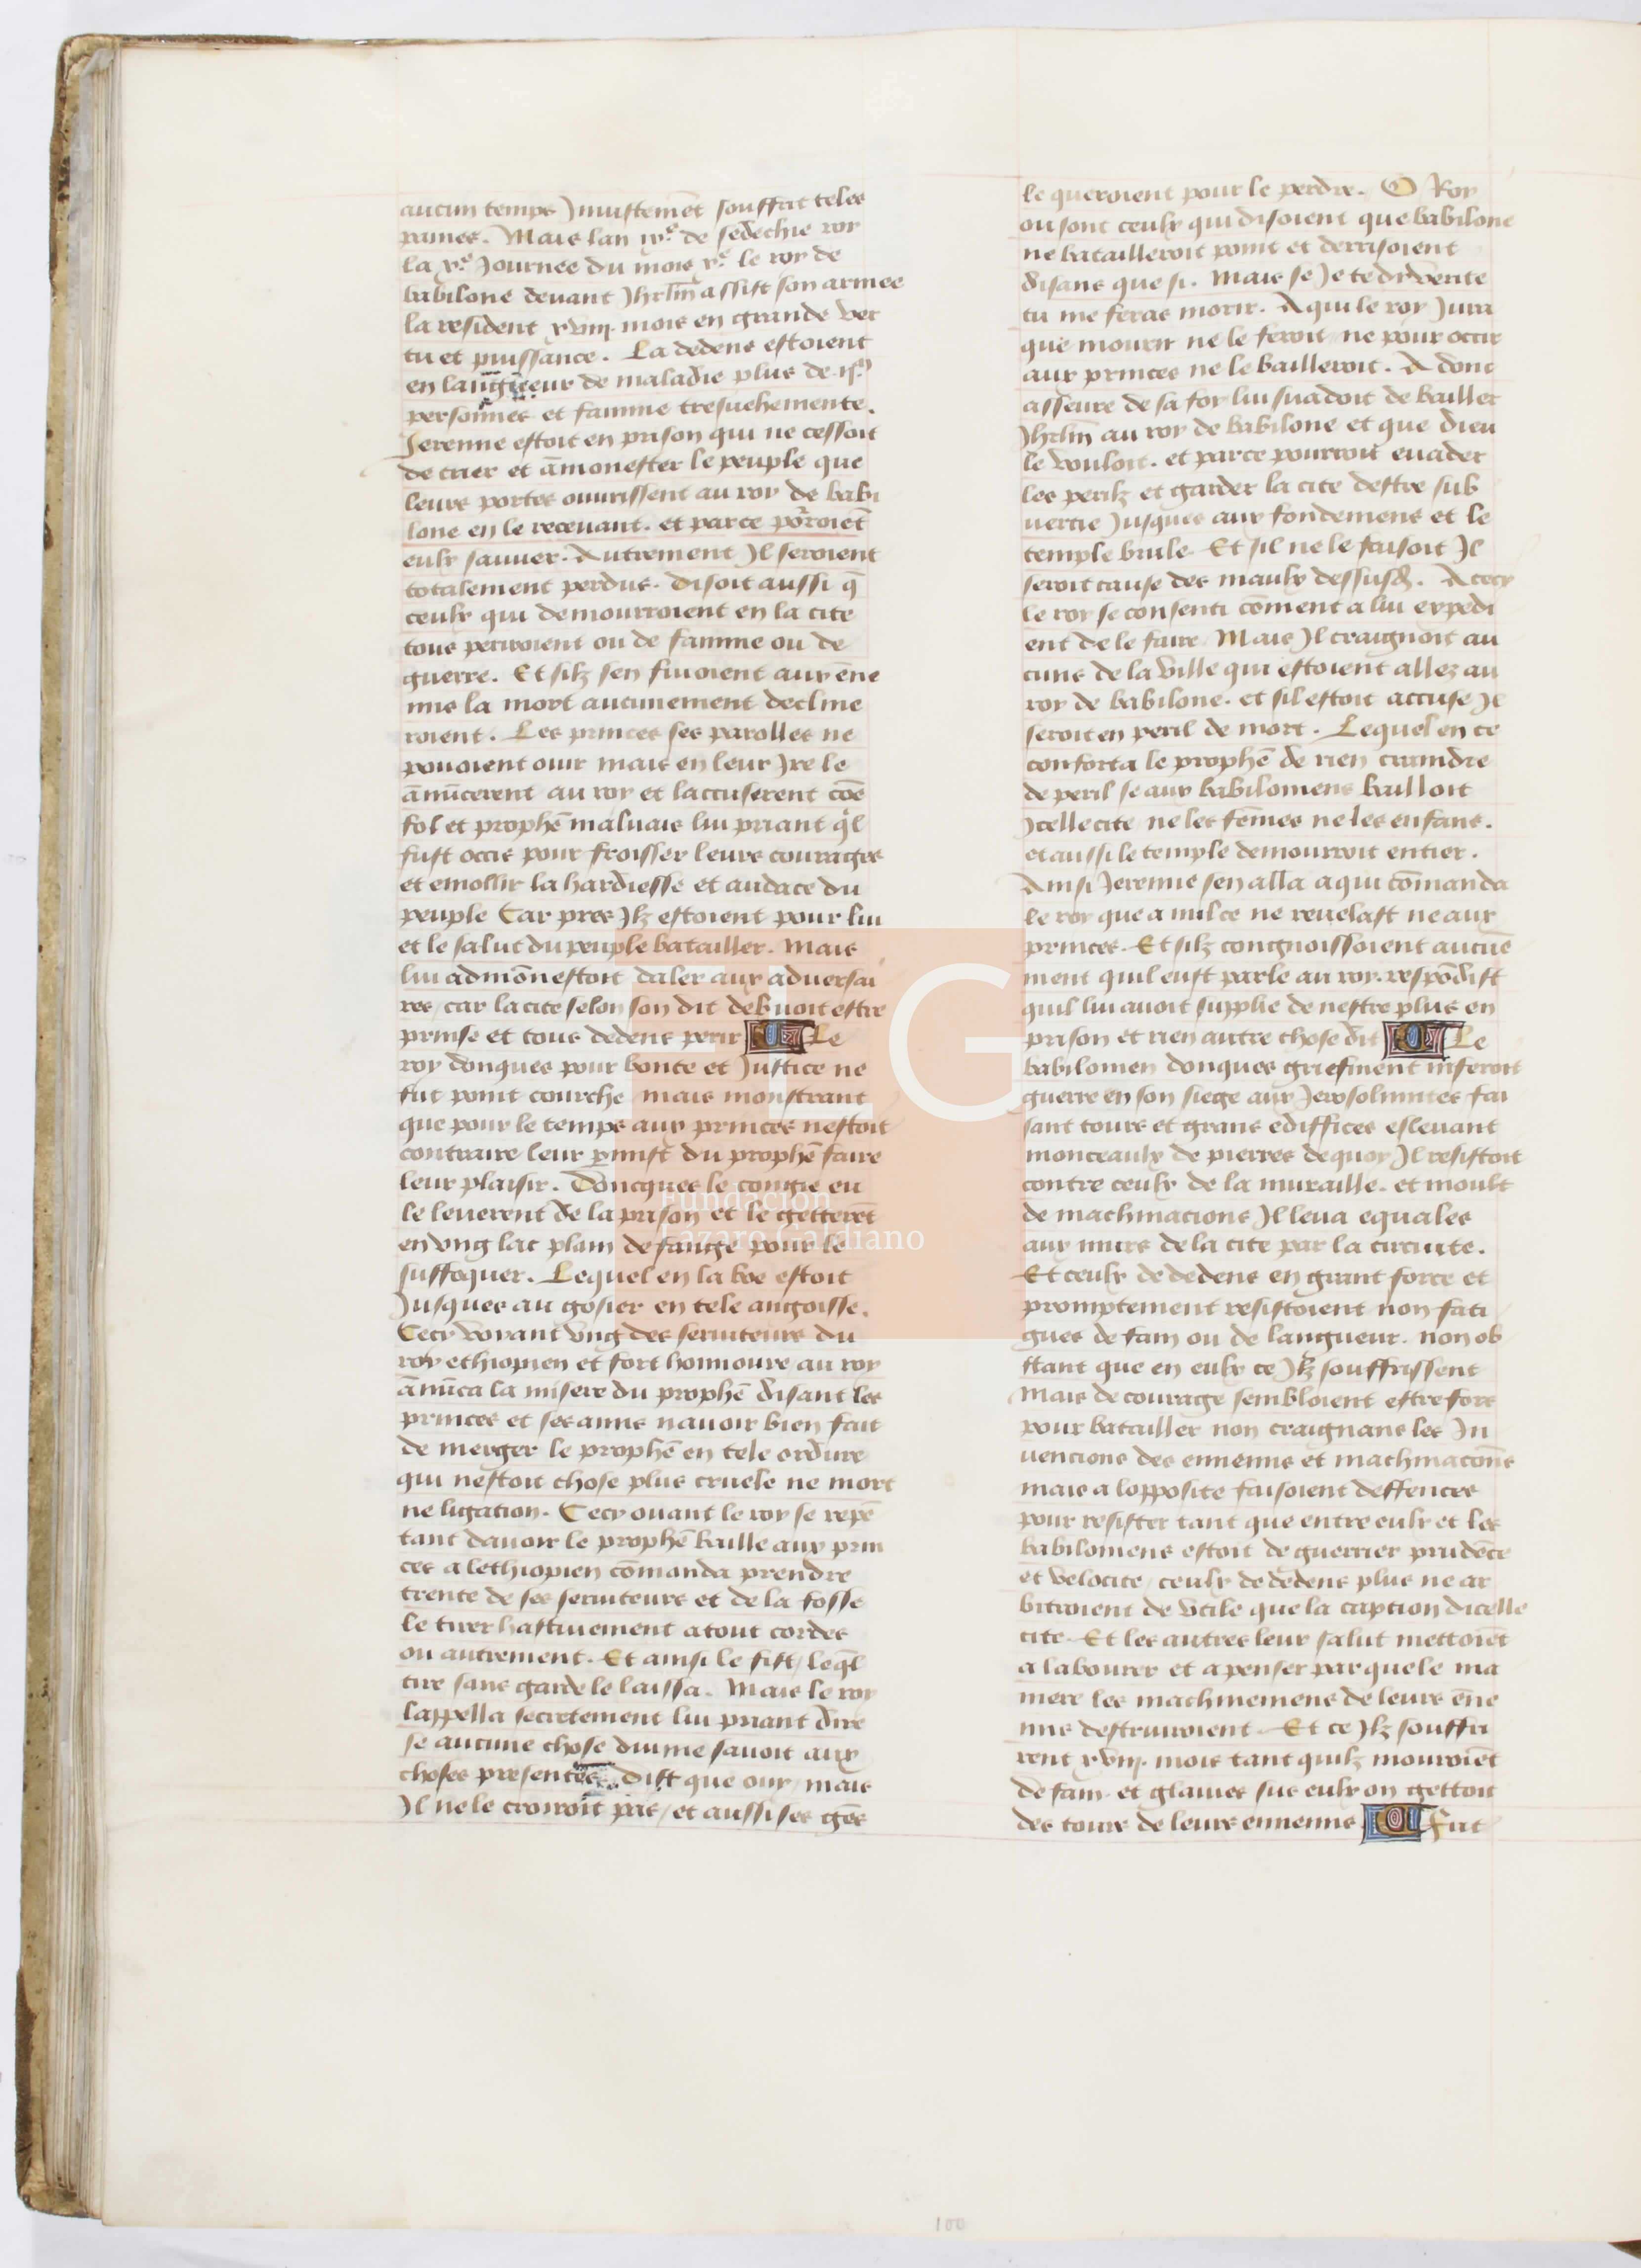 aucun temps Jniustemēt souffrit teles
paines. Mais lan ixᵉ. de sedechie roy
la xᵉ. Journee du mois xᵉ. le roy de
babilone deuant Jhrlm̄ assist son armee
la resident xviij. mois en grande ver
tu et puissance. La dedens estoient
en langueur de maladie plus de
personnes et famine tresuehemente.
Jeremie estoit en prison qui ne cessoit
de crier et āmonester le peuple que
leurs portes ouurissent au roy de babi
lone en le receuant. et parce pōroiēt
eulx sauuer. Autrement Jl seroient
totalement perdus. disoit aussi q̄
ceulx qui demourroient en la cite
tous periroient ou de famine ou de
guerre. Et silz sen fuioient aux ēne
mis la mort aucunement decline
roient. Les princes ses parolles ne
pouoient ouir mais en leur Jre le
ānūcerent au roy et laccuserent cōe
fol et prophē maluais lui priant q̄l
fust occis pour froisser leurs courages
et emollir la hardiesse et audace du
peuple Car pres Jlz estoient pour lui
et le salut du peuple batailler. Mais
lui admōnestoit daler aux aduersai
res / car la cite selon son dit debuoit estre
prinse et tous dedens perir Le
roy donques pour bonte et Justice ne
fut point courche mais monstrant
que pour le temps aux princes nestoit
contraire leur ꝑmist du prophē faire
leur plaisir. Doncques le congie eu
le leuerent de la prison et le getterēt
en vng lac plain de fange pour le
suffoquer. Lequel en la boe estoit
Jusques au gosier en tele angoisse.
Cecy voyant vng des seruiteurs du
roy ethiopien et fort honnoure au roy
ānūca la misere du prophē disant les
princes et ses amis nauoir bien fait
de merger le prophē en tele ordure
qui nestoit chose plus cruele ne mort
ne ligation. Cecy ouant le roy se repē
tant dauoir le prophē baille aux prin
ces a lethiopien cōmanda prendre
trente de ses seruiteurs et de la fosse
le tirer hastiuement a tout cordes
ou autrement. Et ainsi le fist / leq̄l
tire sans garde le laissa. Mais le roy
lappella secretement lui priant dire
se aucune chose diuine sauoit aux
choses presentes dist que ouy / mais
Jl ne le croiroit pas / et aussi ses gēs
le queroient pour le perdre. O Roy
ou sont ceulx qui disoient que babilone
ne batailleroit point et derrisoient
disans que si. Mais se Je te dy verite
tu me feras morir. A qui le roy Jura
que mourir ne le feroit / ne pour occir
aux princes ne le bailleroit. A donc
asseure de sa foy lui suadoit de bailler
Jhrlm̄ au roy de babilone et que dieu
le vouloit. et parce pourroit euader
les perilz et garder la cite destre sub
uertie Jusques aux fondemens et le
temple brule. Et sil ne le faisoit Jl
seroit cause des maulx dessusd. A cecy
le roy se consenti cōment a lui expedi
ent de le faire Mais Jl craignoit au
cuns de la ville qui estoient allez au
roy de babilone. et sil estoit accuse Jl
seroit en peril de mort. Lequel en ce
conforta le prophē de rien craindre
de peril se aux babiloniens bailloit
Jcelle cite ne les fēmes ne les enfans.
et aussi le temple demourroit entier.
Ainsi Jeremie sen alla a qui cōmanda
le roy que a nul ce ne reuelast ne aux
princes. Et silz congnoissoient aucūe
ment quil eust parle au roy. respōdist
quil lui auoit supplie de nestre plus en
prison et rien autre chose dit Le
babilonien donques griefment inferoit
guerre en son siege aux Jerosolimites fai
sant tours et grans ediffices esleuant
monceaulx de pierres de quoy Jl resistoit
contre ceulx de la muraille. et moult
de machinacions Jl leua equales
aux murs de la cite par la circuite.
Et ceulx de dedens en grant force et
promptement resistoient non fati
gues de fain ou de langueur. non ob
stant que en eulx ce Jlz souffrissent
Mais de courage sembloient estre fors
pour batailler non craignans les In
uencions des ennemis et machinacōns
mais a lopposite faisoient deffences
pour resister tant que entre eulx et les
babiloniens estoit de guerrier prudēce
et velocite / ceulx de dedens plus ne ar
bitroient de vtile que la caption dicelle
cite. Et les autres leur salut mettoiēt
a labourer et a penser par quele ma
niere les machinemens de leurs ēne
mis destruiroient. Et ce Jlz souffri
rent xviij. mois tant quilz mouroiēt
de fain. et glaiues sus eulx on gettoit
des tours de leurs ennemis Fut
FLG
Fundación
Lázaro Galdiano
100